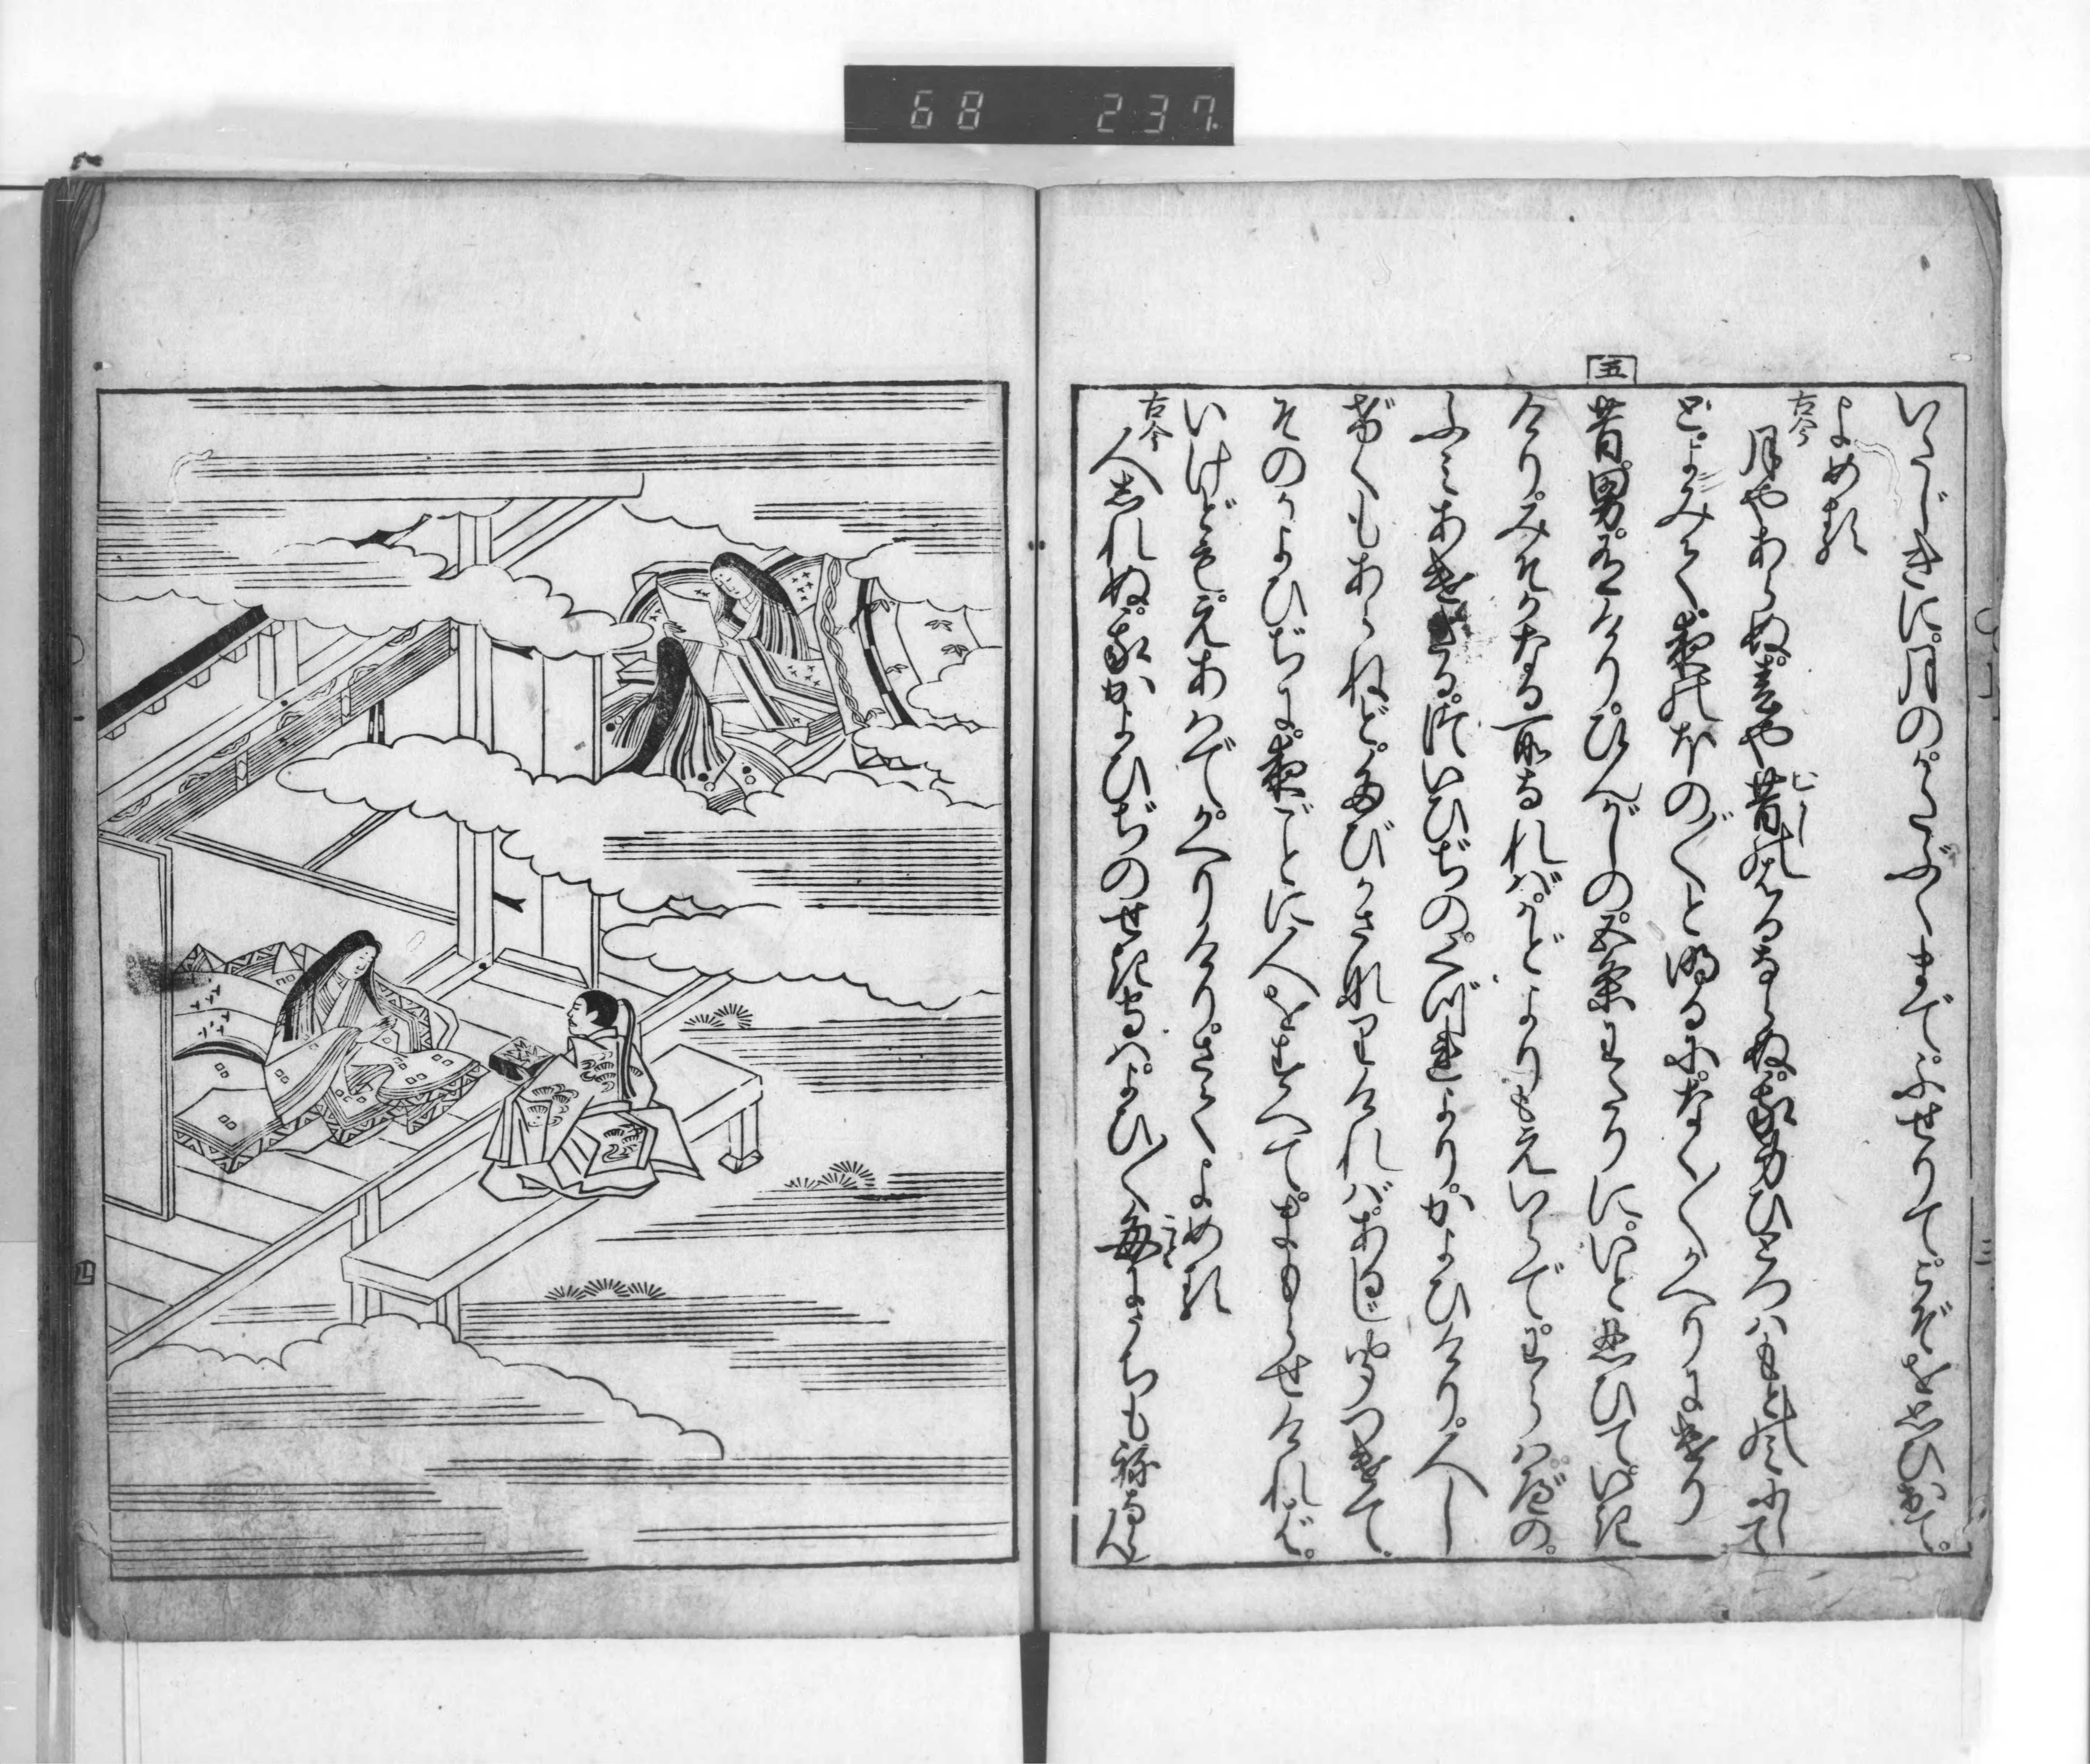 68 237
いたじきに。月のかたぶくまで。ふせりて。こぞを思ひ出て。
よめる
古今
月やあらぬ。春や昔のはるならぬ。我身ひとつはもとの身にして
むかし
とよみて。夜のほの〴〵と明るに。なく〳〵かへりにけり
五
昔男。有けり。ひんがしの五条わたりに。いと忍びていき
けり。みそかなる所なれば。かどよりもえいらで。わらはべの。
ふみあけたる。ついひぢの。くづれより。かよひけり。人し
げくもあらねど。たびかさなりければ。あるじ。聞つけて。
そのかよひぢに。夜ごとに人をすへて。まもらせければ。
いけども。えあはで。かへりけり。さてよめる
古今
人しれぬ。我かよひぢのせきもりは。よひ〳〵毎にうちもねなゝん
ごと
四